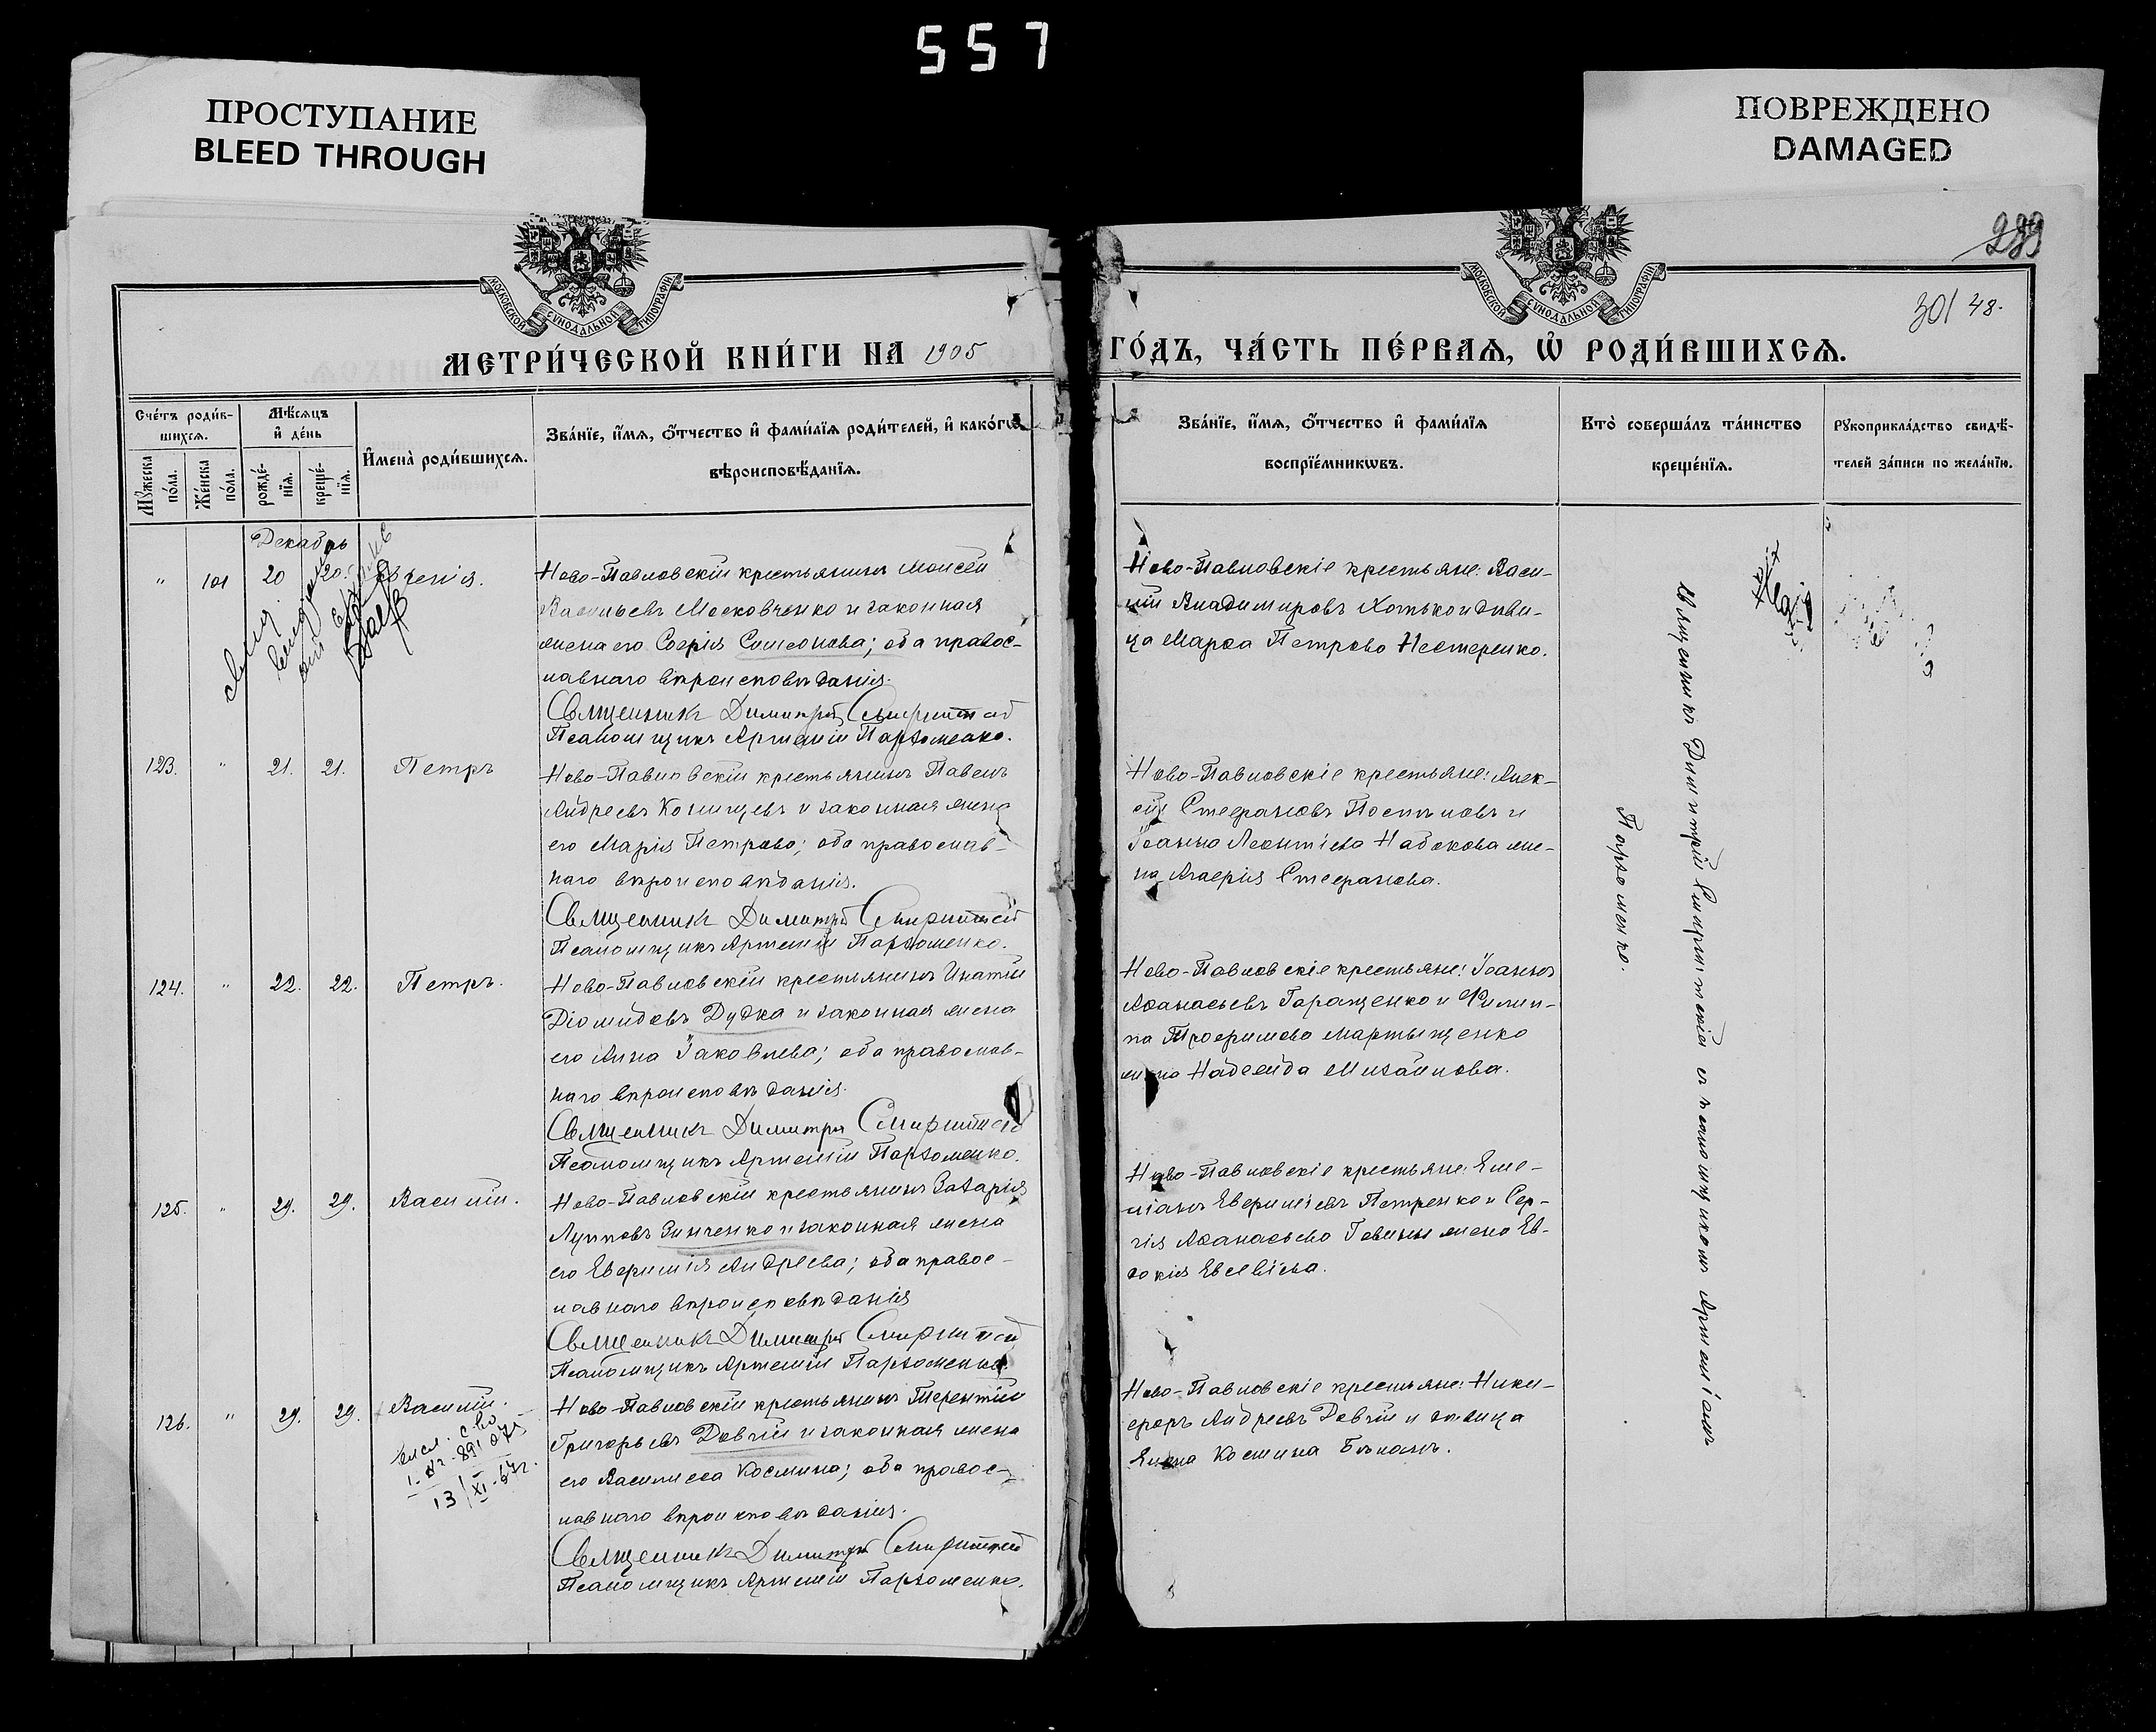 557
ПРОСТУПАНИЕ
BLEED THROUGH
ПОВРЕЖДЕНО
DAMAGED
289
301 48.
МОСКОВСКОЙ СУНОДАЛЬНОЙ ТИПОГРАФІИ
МОСКОВСКОЙ СУНОДАЛЬНОЙ ТИПОГРАФІИ
МЕТРИ́ЧЕСКОЙ КНИ́ГИ НА 1905
ГО́ДЪ, ЧА́СТЬ ПЕ́РВАѦ, Ѡ҆ РОДИ́ВШИХСѦ.
Сче́тъ роди́в-
шихсѧ.
Мꙋ́жеска по́ла.
Же́нска по́ла.
Мѣ́сѧцъ
и҆ де́нь
рожде́-
нїѧ.
креще́-
нїѧ.
И҆мена̀ роди́вшихсѧ.
Зва́нїе, и҆́мѧ, ѻ҆́тчество и҆ фами́лїѧ роди́телей, и҆ како́гѡ
вѣроисповѣ́данїѧ.
Зва́нїе, и҆́мѧ, ѻ҆́тчество и҆ фами́лїѧ
воспрїе́мникѡвъ.
Кто̀ соверша́лъ та́инство
креще́нїѧ.
Рꙋкоприкла́дство свидѣ́-
телей за́писи по жела́нїю.
Декабрь
" 101 20 20.
Ново-Павловскій крестьянинъ Моисей
Васильевъ Московченко и законная
жена его Софія Симеонова; оба правос-
лавнаго вѣроисповѣданія.
Священникъ Димитрій
Псаломщикъ Артемій Пархоменко.
Ново-Павловскіе крестьяне: Васи-
лій Владимировъ Хотько и дѣви-
ца Марѳа Петрова Нестеренко.
123. " 21. 21. Петръ
Ново-Павловскій крестьянинъ Павелъ
Андреевъ и законная жена
его Марія Петрова; оба православ-
наго вѣроисповѣданія.
Священникъ Димитрій
Псаломщикъ Артемій Пархоменко.
Ново-Павловскіе крестьяне: Алек-
сій Стефановъ Постъловъ и
Іоанна Леонтіева Набокова же-
на Агафія Стефанова.
124. " 22. 22. Петръ.
Ново-Павловскій крестьянинъ Ипатій
Діомидовъ Дудка и законная жена
его Анна Іаковлева; оба православ-
наго вѣроисповѣданія.
Священникъ Димитрій
Псаломщикъ Артемій Пархоменко.
Ново-Павловскіе крестьяне: Іоаннъ
Аѳанасьевъ Гаращенко и Филип-
па Трофимова Мартыщенко
жена Надежда Михайлова.
125. " 29. 29. Василій.
Ново-Павловскій крестьянинъ Захарія
Лупповъ Зинченко и законная жена
его Евфимія Андреева; оба правос-
лавнаго вѣроисповѣданія
Священникъ Димитрій
Псаломщикъ Артемій Пархоменко.
Ново-Павловскіе крестьяне: Еме-
ліанъ Евфиміевъ Петренко и Сер-
гія Аѳанасьева жена Ев-
докія Евсевіева.
126. " 29. 29. Василій.
1
13/XI-67г.
Ново-Павловскій крестьянинъ Терентій
Григорьевъ Довгій и законная жена
его Василисса Космина; оба правос-
лавнаго вѣроисповѣданія.
Священникъ Димитрій
Псаломщикъ Артемій Пархоменко.
Ново-Павловскіе крестьяне: Ники-
форъ Андреевъ Довгій и дѣвица
Елена Космина
Священникъ Димитрій съ псаломщикомъ Артеміемъ
Пархоменко.